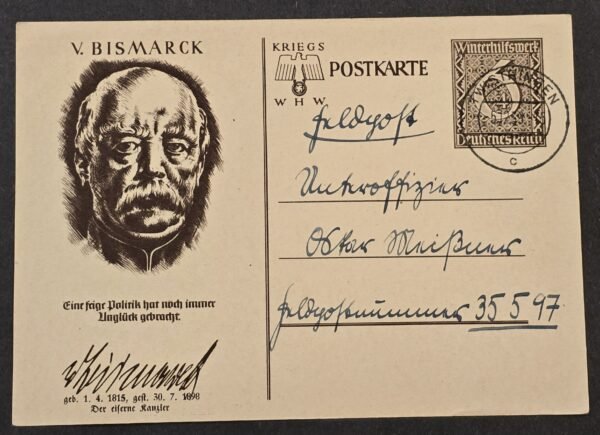 V. BISMARCK
Eine feige Politik hat noch immer
Unglück gebracht.
v Bismarck
geb. 1. 4. 1815, gest. 30. 7. 1898
Der eiserne Kanzler
KRIEGS
WHW
POSTKARTE
Winterhilfswerk
6
Deutsches Reich
TWISTRINGEN
c
Feldpost
Unteroffizier
Oskar Meißner
Feldpostnummer 35597